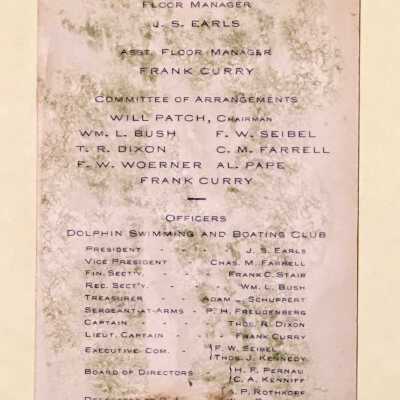 FLOOR MANAGER
J. S. EARLS
ASST. FLOOR MANAGER
FRANK CURRY
COMMITTEE OF ARRANGEMENTS
WILL PATCH, CHAIRMAN
WM. L. BUSH F. W. SEIBEL
T. R. DIXON C. M. FARRELL
F. W. WOERNER AL. PAPE
FRANK CURRY
OFFICERS
DOLPHIN SWIMMING AND BOATING CLUB
PRESIDENT - - - J. S. EARLS
VICE PRESIDENT - - CHAS. M. FARRELL
FIN. SECT'Y. - - - FRANK C. STAIR
REC. SECT'Y. - - - WM. L. BUSH
TREASURER - - ADAM SCHUPPERT
SERGEANT-AT-ARMS - P. H. FREUDENBERG
CAPTAIN - - - THOS. R. DIXON
LIEUT. CAPTAIN - - FRANK CURRY
EXECUTIVE COM. - - F. W. SEIBEL
THOS. J. KENNEDY
BOARD OF DIRECTORS - H. F. PERNAU
C. A. KENNIFF
P. ROTHKOPF